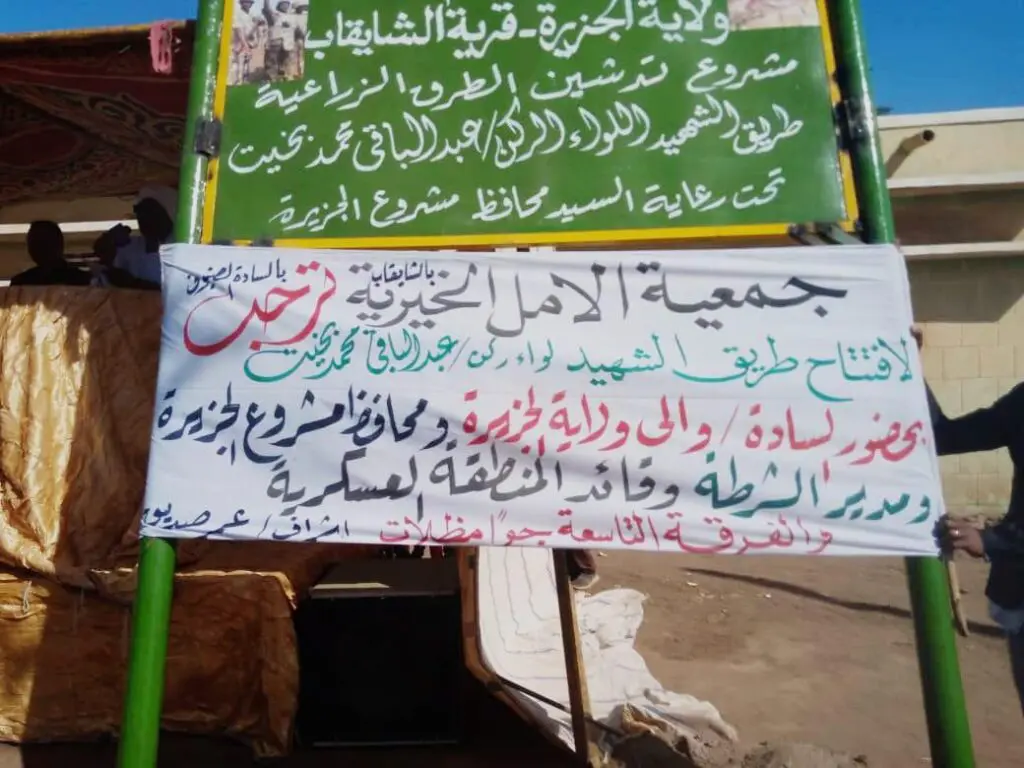 ولاية الجزيرة - قرية الشايقاب
مشروع تدشين الطرق الزراعية
طريق الشهيد اللواء الركن/ عبد الباقي محمد بخيت
تحت رعاية السيد محافظ مشروع الجزيرة
جمعية الامل الخيرية بالشايقاب ترحب بالسادة الضيوف
لافتتاح طريق الشهيد لواء ركن/ عبد الباقي محمد بخيت
بحضور السادة/ والى ولاية الجزيرة ومحافظ مشروع الجزيرة
ومدير الشرطة وقائد المنطقة العسكرية
والفرقة التاسعة جواً مظلات اشراف/ عمر صديق